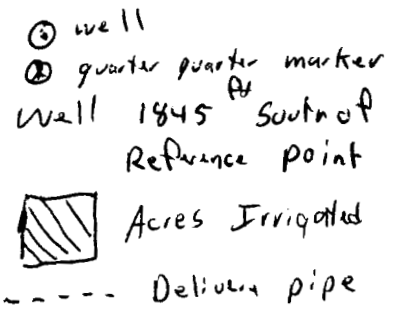 well
quarter quarter marker
Well 1845 ft South of
Reference point
Acres Irrigated
Delivery pipe